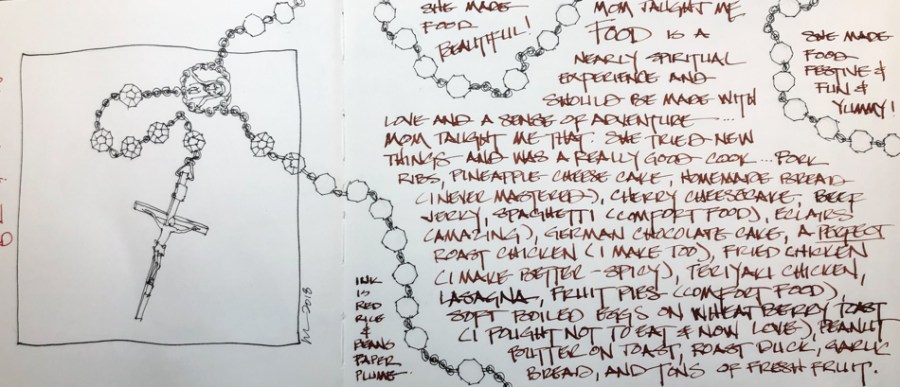 SHE MADE
FOOD
BEAUTIFUL!
MOM TAUGHT ME
FOOD IS A
NEARLY SPIRITUAL
EXPERIENCE AND
SHOULD BE MADE WITH
LOVE AND A SENSE OF ADVENTURE...
MOM TAUGHT ME THAT. SHE TRIED NEW
THINGS AND WAS A REALLY GOOD COOK... PORK
RIBS, PINEAPPLE CHEESE CAKE, HOMEMADE BREAD
(I NEVER MASTERED), CHERRY CHEESECAKE, BEEF
JERKY, SPAGHETTI (COMFORT FOOD), ECLAIRS
(AMAZING), GERMAN CHOCOLATE CAKE, A PERFECT
ROAST CHICKEN (I MAKE TOO), FRIED CHICKEN
(I MAKE BETTER - SPICY), TERIYAKI CHICKEN,
LASAGNA, FRUIT PIES (COMFORT FOOD),
SOFT BOILED EGGS ON WHEAT BERRY TOAST
(I FOUGHT NOT TO EAT & NOW LOVE), PEANUT
BUTTER ON TOAST, ROAST DUCK, GARLIC
BREAD, AND TONS OF FRESH FRUIT.
SHE MADE
FOOD
FESTIVE &
FUN &
YUMMY!
INK
IS
RED
RICE
&
BEANS
PAPER
PLUME
2018